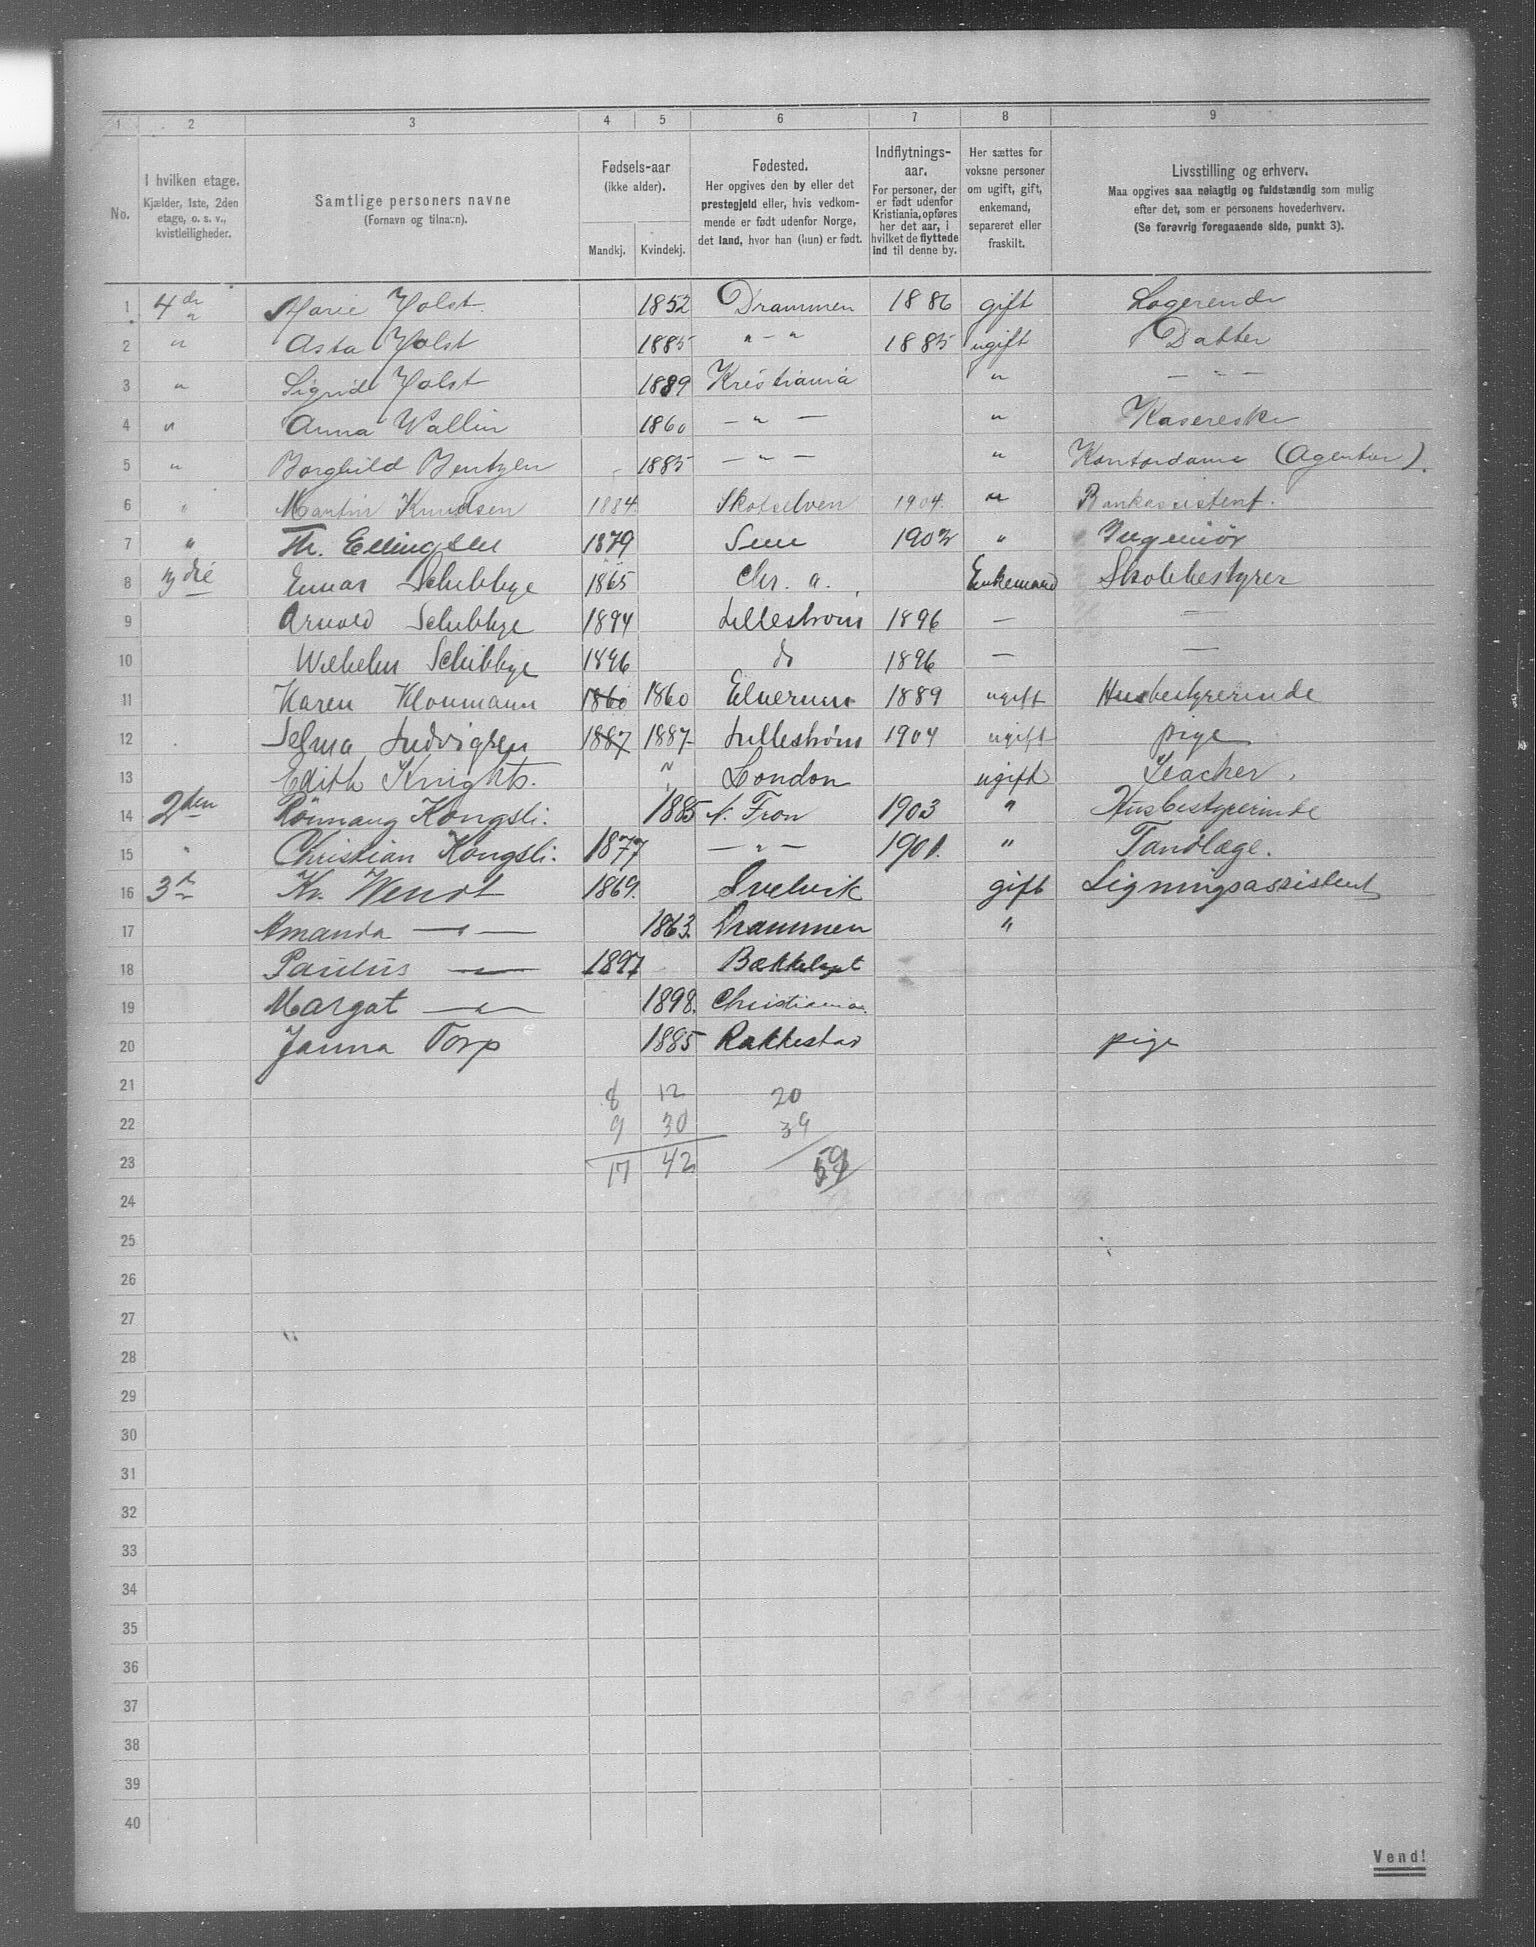 1 2 3 4 5 6 7 8 9
No.
I hvilken etage.
Kjælder, 1ste, 2den
etage, o. s. v.,
kvistleiligheder.
Samtlige personers navne
(Fornavn og tilnavn).
Fødsels-aar
(ikke alder).
Mandkj. Kvindekj.
Fødested.
Her opgives den by eller det
prestegjeld eller, hvis vedkom-
mende er født udenfor Norge,
det land, hvor han (hun) er født.
Indflytnings-
aar.
For personer, der
er født udenfor
Kristiania, opføres
her det aar, i
hvilket de flyttede
ind til denne by.
Her sættes for
voksne personer
om ugift, gift,
enkemand,
separeret eller
fraskilt.
Livsstilling og erhverv.
Maa opgives saa nøiagtig og fuldstændig som mulig
efter det, som er personens hovederhverv.
(Se forøvrig foregaaende side, punkt 3).
1 4de Marie Holst 1852 Drammen 1886 gift Logerende
2 " Asta Holst 1885 " - " 1885 ugift Datter
3 " Sigrid Holst 1889 Kristiania " — " —
4 " Anna Wallin 1860 — " — "
5 " Borghild Bentzen 1885 — " — " Kontordame (Agentur).
6 " Martin Knudsen 1884 Skotselven 1904. " Bankassistent.
7 " Th. Ellingsen 1879 Sem 1902 " Ingeniør
8 3die Einar Schibbye 1865 Chr. a. Enkemand Skolebestyrer
9 Arnold Schibbye 1894 Lillestrøm 1896 — —
10 Wilhelm Schibbye 1896 do 1896 — —
11 Karen Kloumann 1860 1860 Elverum 1889 ugift Husbestyrerinde
12 Selma Ludvigsen 1887 1887 Lillestrøm 1904 ugift pige
13 Edith Knights. " London ugift Teacher.
14 2den Rönnaug Kongsli. 1885 N. Fron 1903 " Husbestyrerinde
15 " Christian Kongsli. 1877 — " — 1901. " Tandlæge.
16 3de Kr. Wendt 1869. Svelvik gift Ligningsassistent
17 Amanda — " — 1863. Drammen "
18 Paulus — " — 1897 Bækkelaget
19 Margot — " — 1898. Christiania.
20 Janna Torp 1885 Rakkestad pige
21 8 12 20
22 9 30 39
23 17 42 59
24
25
26
27
28
29
30
31
32
33
34
35
36
37
38
39
40
Vend!